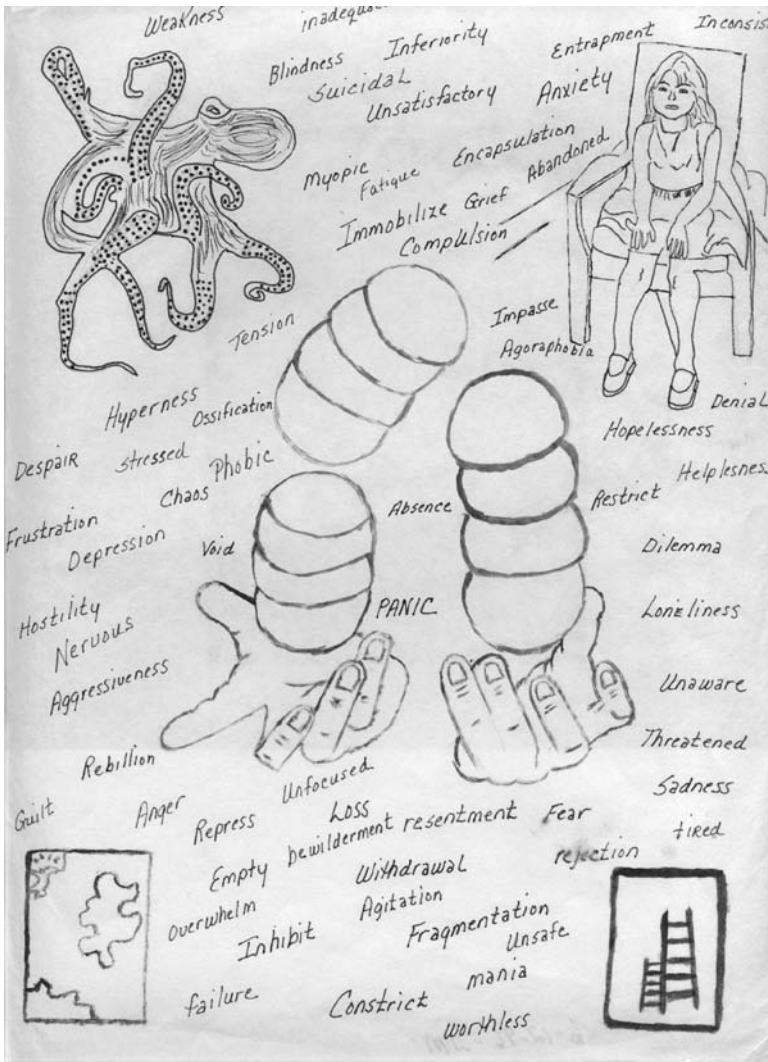 Weakness
Blindness
Inferiority
Entrapment
Suicidal
Unsatisfactory
Anxiety
Myopic
Fatique
Encapsulation
Abandoned
Immobilize
Grief
Compulsion
Tension
Impasse
Agoraphobia
Hyperness
Ossification
Denial
Hopelessness
Despair
Stressed
Phobic
Helplesnes
Chaos
Absence
Restrict
Frustration
Depression
Void
Dilemma
Hostility
Nervous
PANIC
Lonliness
Aggressiveness
Unaware
Rebillion
Threatened
Unfocused
Sadness
Guilt
Anger
Repress
Loss
bewilderment
resentment
Fear
tired
Empty
Withdrawal
rejection
overwhelm
Agitation
Inhibit
Fragmentation
Unsafe
mania
failure
Constrict
worthless